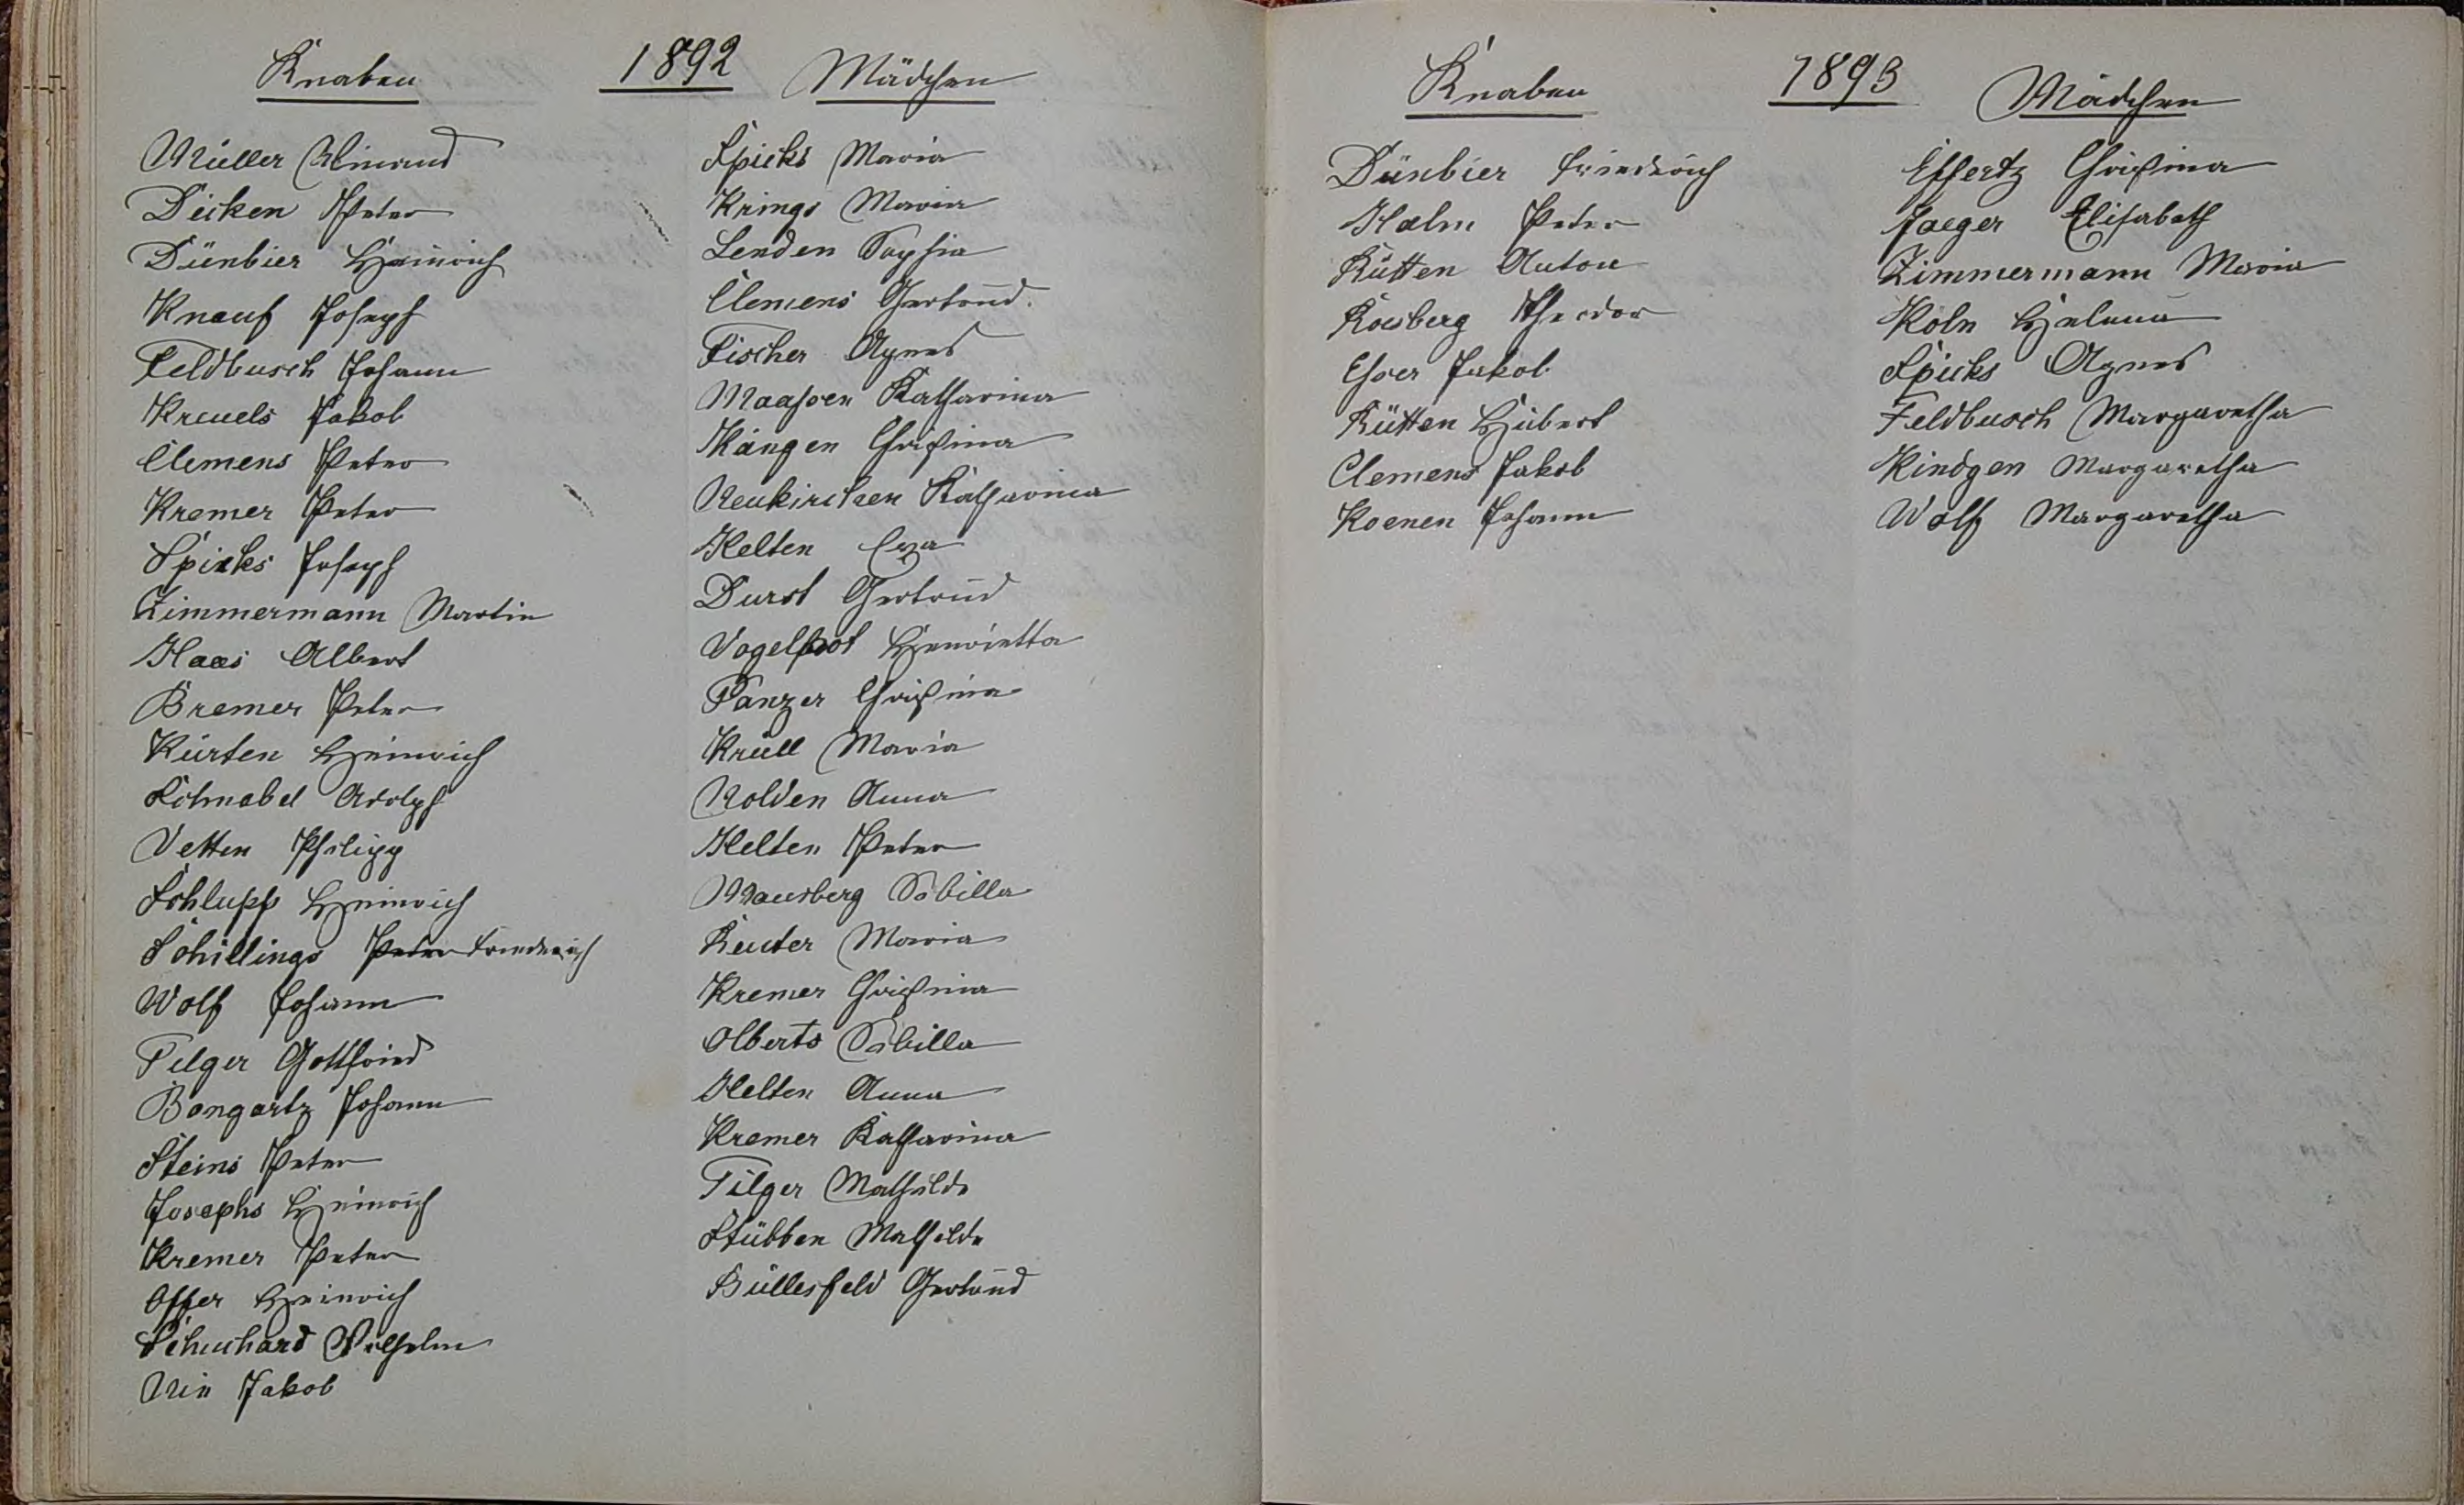 Knaben
1892
Mädchen
Müller
Dicken Peter
Dünbier Heinrich
Knauf Joseph
Feldbusch Johann
Kreuels Jakob
Clemens Peter
Kremer Peter
Spicks Joseph
Zimmermann Martin
Haas Albert
Bremer Peter
Kürten Heinrich
Schnabel Adolph
Vetten Philipp
Schlupp Heinrich
Schillings Peter Friedrich
Wolf Johann
Pilger Gottfried
Bongartz Johann
Steins Peter
Josephs Heinrich
Kremer Peter
Offer Heinrich
Schuchard Wilhelm
Jakob
Spicks Maria
Krings Maria
Lenden Sophia
Clemens Gertrud.
Fischer Agnes
Maassen Katharina
Christina
Neukirchen Katharina
Helten Eva
Durst Gertrud
Vogelpot Henrietta
Panzer Christina
Krüll Maria
Nolden Anna
Helten Peter
Mausberg Sibilla
Reuter Maria
Kremer Christina
Olberts Sibilla
Helten Anna
Kremer Katharina
Pilger Mathilde
Stübben Mathilde
Büllesfeld Gertrud
Knaben
1893
Mädchen
Dünbier Friedrich
Halm Peter
Rütten Anton
Theodor
Esser Jakob
Rütten Hubert
Clemens Jakob
Koenen Johann
Effertz Christina
Jaeger Elisabeth
Zimmermann Maria
Köln Helena
Spicks Agnes
Feldbusch Margaretha
Kindgen Margaretha
Wolf Margaretha